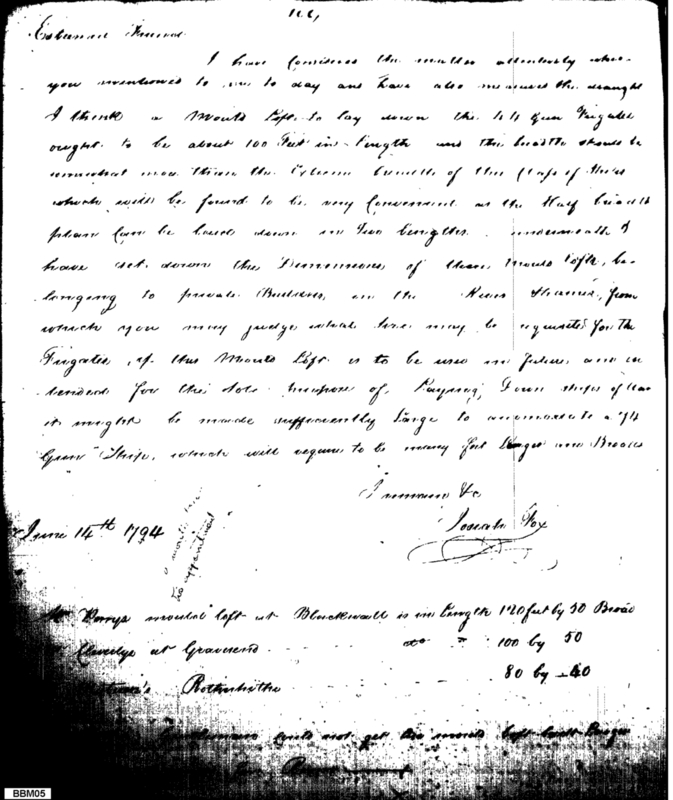 Esteemed Friend
I have Considered the matter attentively when
you mentioned to me to day and have also measured the draught
I think a Mould Loft to lay down the 44 Gun Frigates
ought to be about 100 Feet in Length and the breadth should be
somewhat more than the Extreme breadth of this Class of Ships
which will be found to be very Convenient as the Half breadth
plan Can be laid down in Two Lengths. underneath I
have set down the Dimensions of three Mould Lofts, be-
longing to private Builders, on the River Thames, from
which you may judge what size may be requisite for the
Frigates, if this Mould Loft is to be used in future and in
tended for the sole purpose of Laying Down ships of War
it might be made sufficiently Large to accommodate a 74
Gun Ship, which will require to be many feet Longer and Broader
I remain &c
Josiah Fox
June 14th 1794
a mould
Mr Perrys mould loft at Blackwall is in Length 120 feet by 50 Broad
Cleverlys at Gravesend do 100 by 50
Rotherhithe 80 by 40
Gentlemen could not get the mould loft built Larger
BBM05